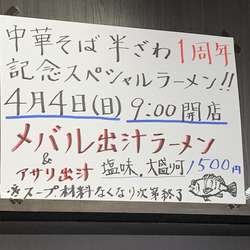 中華そば 半ざわ 1周年
記念スペシャルラーメン!!
4月4日(日) 9:00開店
メバル出汁ラーメン
&
アサリ出汁 塩味、大盛り可 1500円
※スープ材料なくなり次第終了